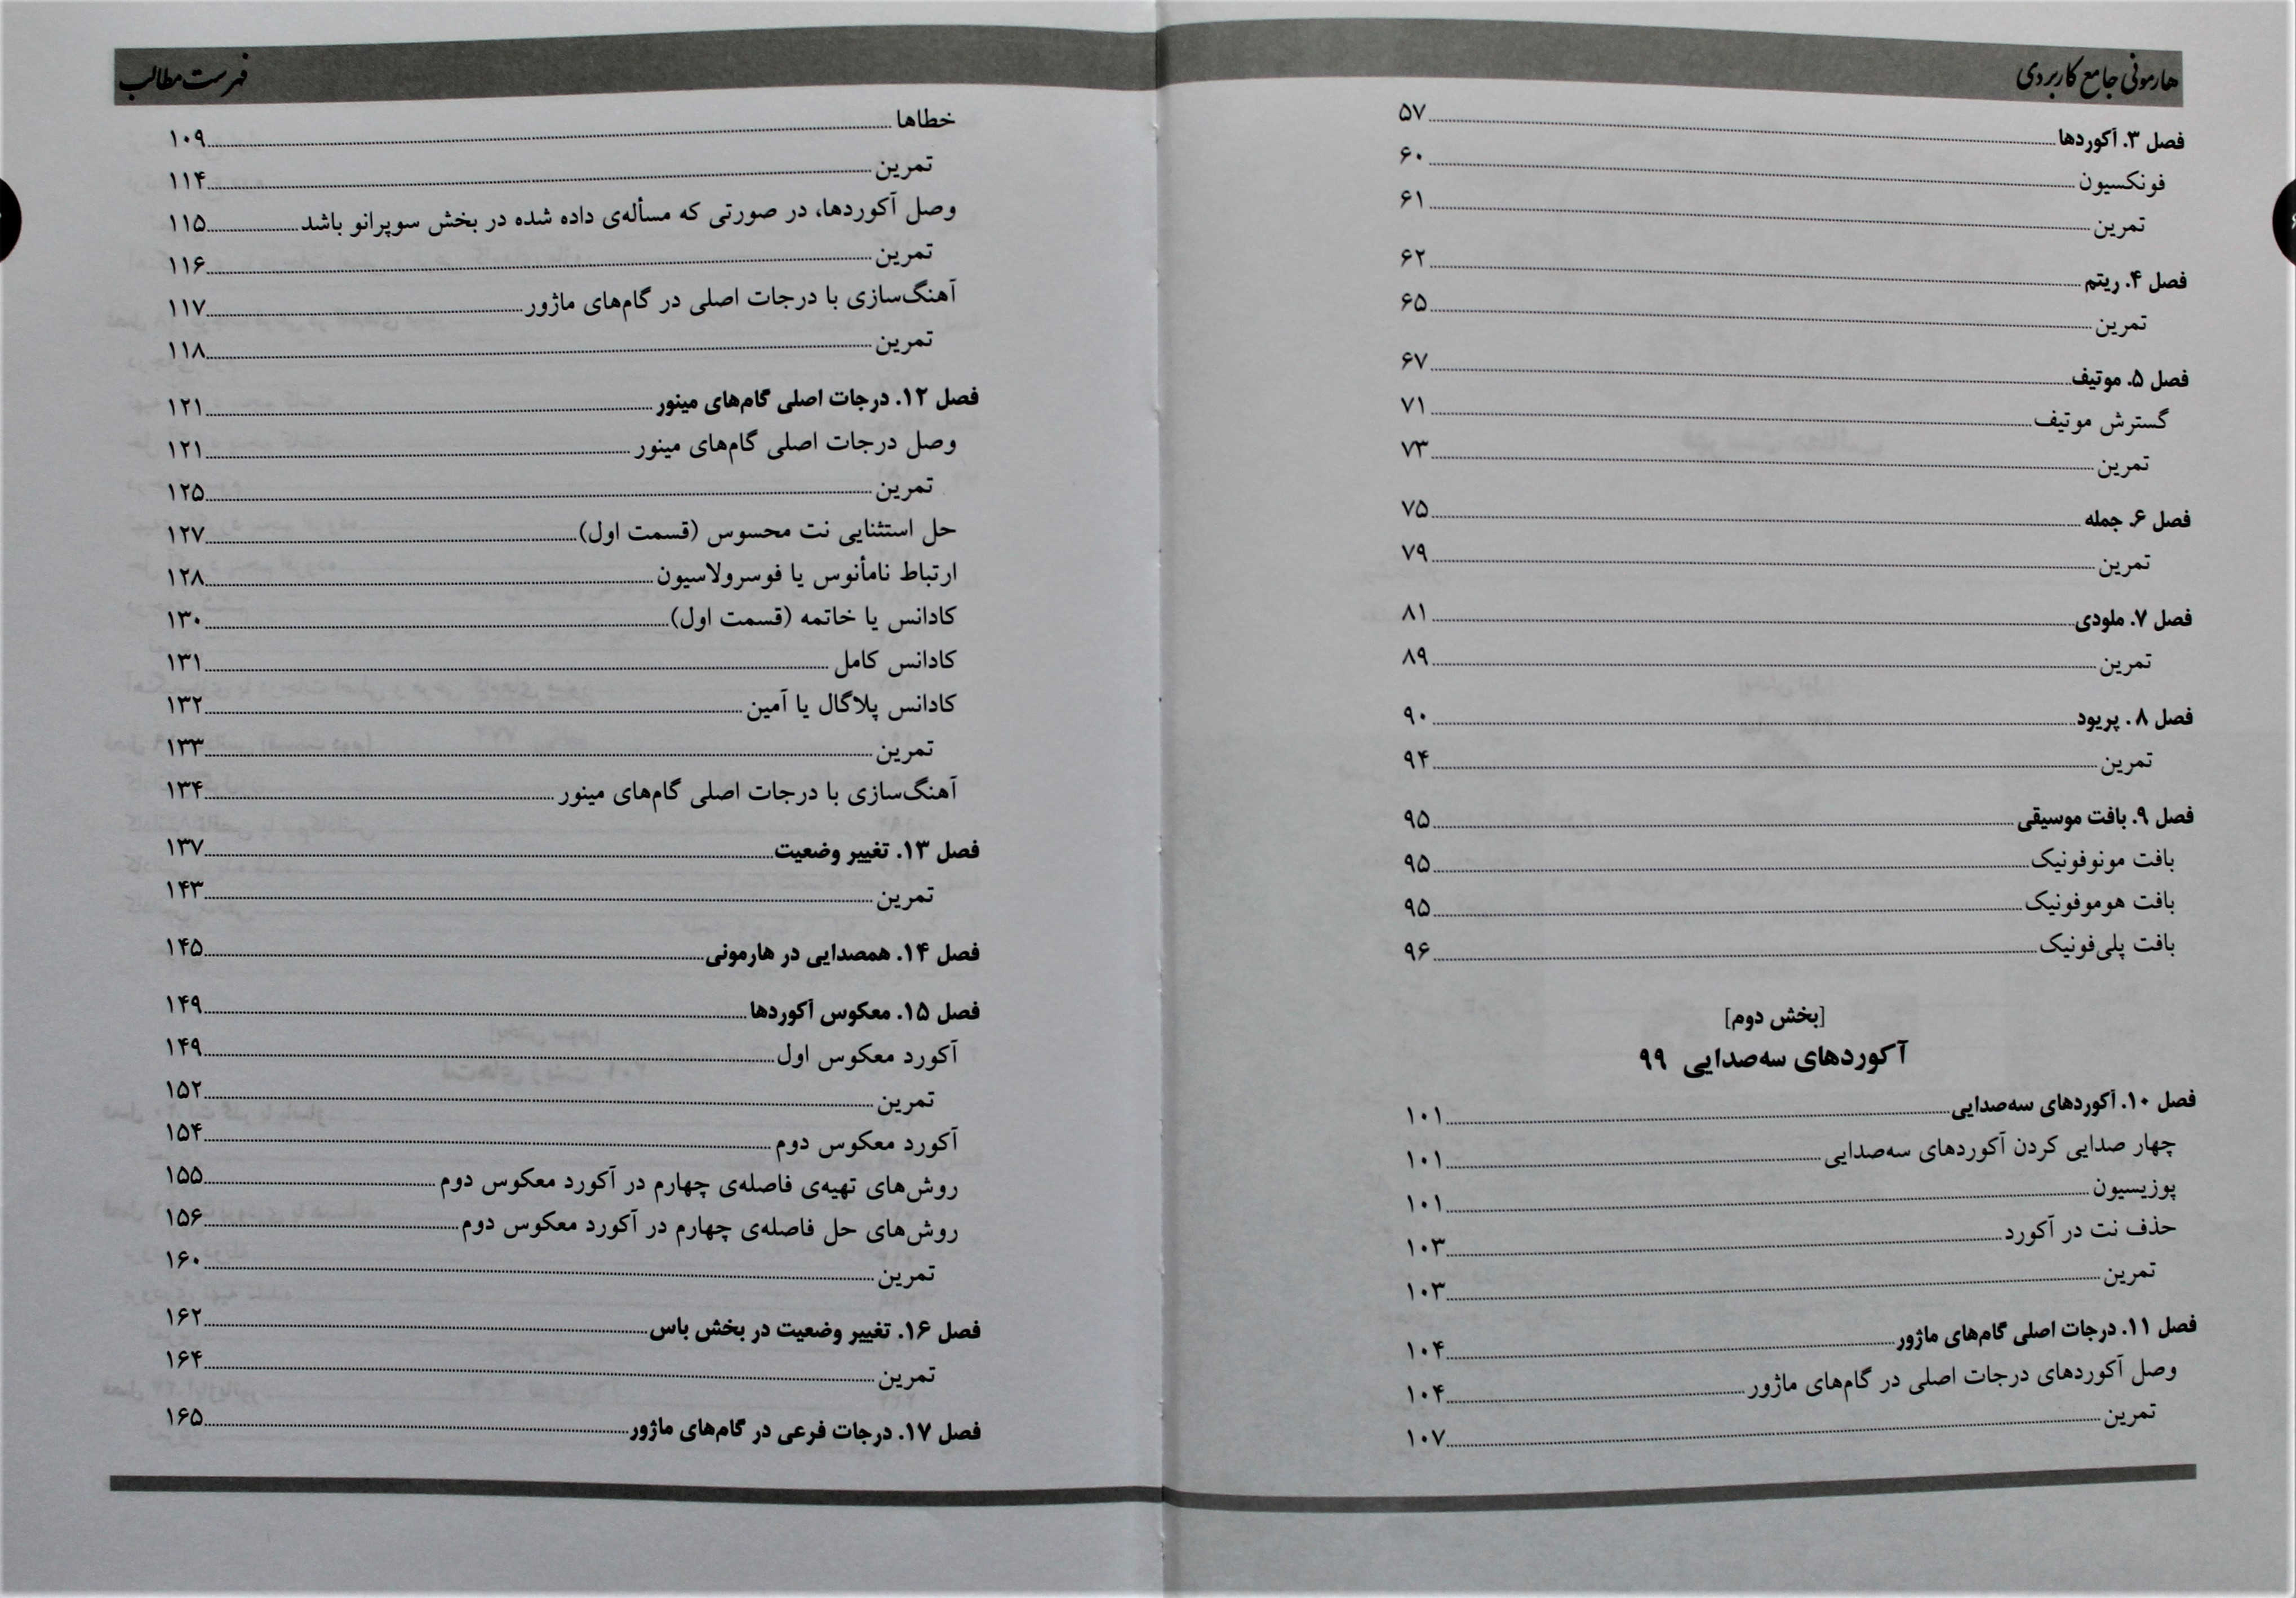 هارمونی جامع کاربردی
فصل ۳. آکوردها ۵۷
فونکسیون ۶۰
تمرین ۶۱
فصل ۴. ریتم ۶۲
تمرین ۶۵
فصل ۵. موتیف ۶۷
گسترش موتیف ۷۱
تمرین ۷۳
فصل ۶. جمله ۷۵
تمرین ۷۹
فصل ۷. ملودی ۸۱
تمرین ۸۹
فصل ۸. پریود ۹۰
تمرین ۹۴
فصل ۹. بافت موسیقی ۹۵
بافت مونوفونیک ۹۵
بافت هوموفونیک ۹۵
بافت پلی‌فونیک ۹۶
[بخش دوم]
آکوردهای سه‌صدایی ۹۹
فصل ۱۰. آکوردهای سه‌صدایی ۱۰۱
چهار صدایی کردن آکوردهای سه‌صدایی ۱۰۱
پوزیسیون ۱۰۱
حذف نت در آکورد ۱۰۳
تمرین ۱۰۳
فصل ۱۱. درجات اصلی گام‌های ماژور ۱۰۴
وصل آکوردهای درجات اصلی در گام‌های ماژور ۱۰۴
تمرین ۱۰۷
فهرست مطالب
خطاها ۱۰۹
تمرین ۱۱۴
وصل آکوردها، در صورتی که مسأله‌ی داده شده در بخش سوپرانو باشد ۱۱۵
تمرین ۱۱۶
آهنگ‌سازی با درجات اصلی در گام‌های ماژور ۱۱۷
تمرین ۱۱۸
فصل ۱۲. درجات اصلی گام‌های مینور ۱۲۱
وصل درجات اصلی گام‌های مینور ۱۲۱
تمرین ۱۲۵
حل استثنایی نت محسوس (قسمت اول) ۱۲۷
ارتباط نامأنوس یا فوسرولاسیون ۱۲۸
کادانس یا خاتمه (قسمت اول) ۱۳۰
کادانس کامل ۱۳۱
کادانس پلاگال یا آمین ۱۳۲
تمرین ۱۳۳
آهنگ‌سازی با درجات اصلی گام‌های مینور ۱۳۴
فصل ۱۳. تغییر وضعیت ۱۳۷
تمرین ۱۴۳
فصل ۱۴. همصدایی در هارمونی ۱۴۵
فصل ۱۵. معکوس آکوردها ۱۴۹
آکورد معکوس اول ۱۴۹
تمرین ۱۵۲
آکورد معکوس دوم ۱۵۴
روش‌های تهیه‌ی فاصله‌ی چهارم در آکورد معکوس دوم ۱۵۵
روش‌های حل فاصله‌ی چهارم در آکورد معکوس دوم ۱۵۶
تمرین ۱۶۰
فصل ۱۶. تغییر وضعیت در بخش باس ۱۶۲
تمرین ۱۶۴
فصل ۱۷. درجات فرعی در گام‌های ماژور ۱۶۵